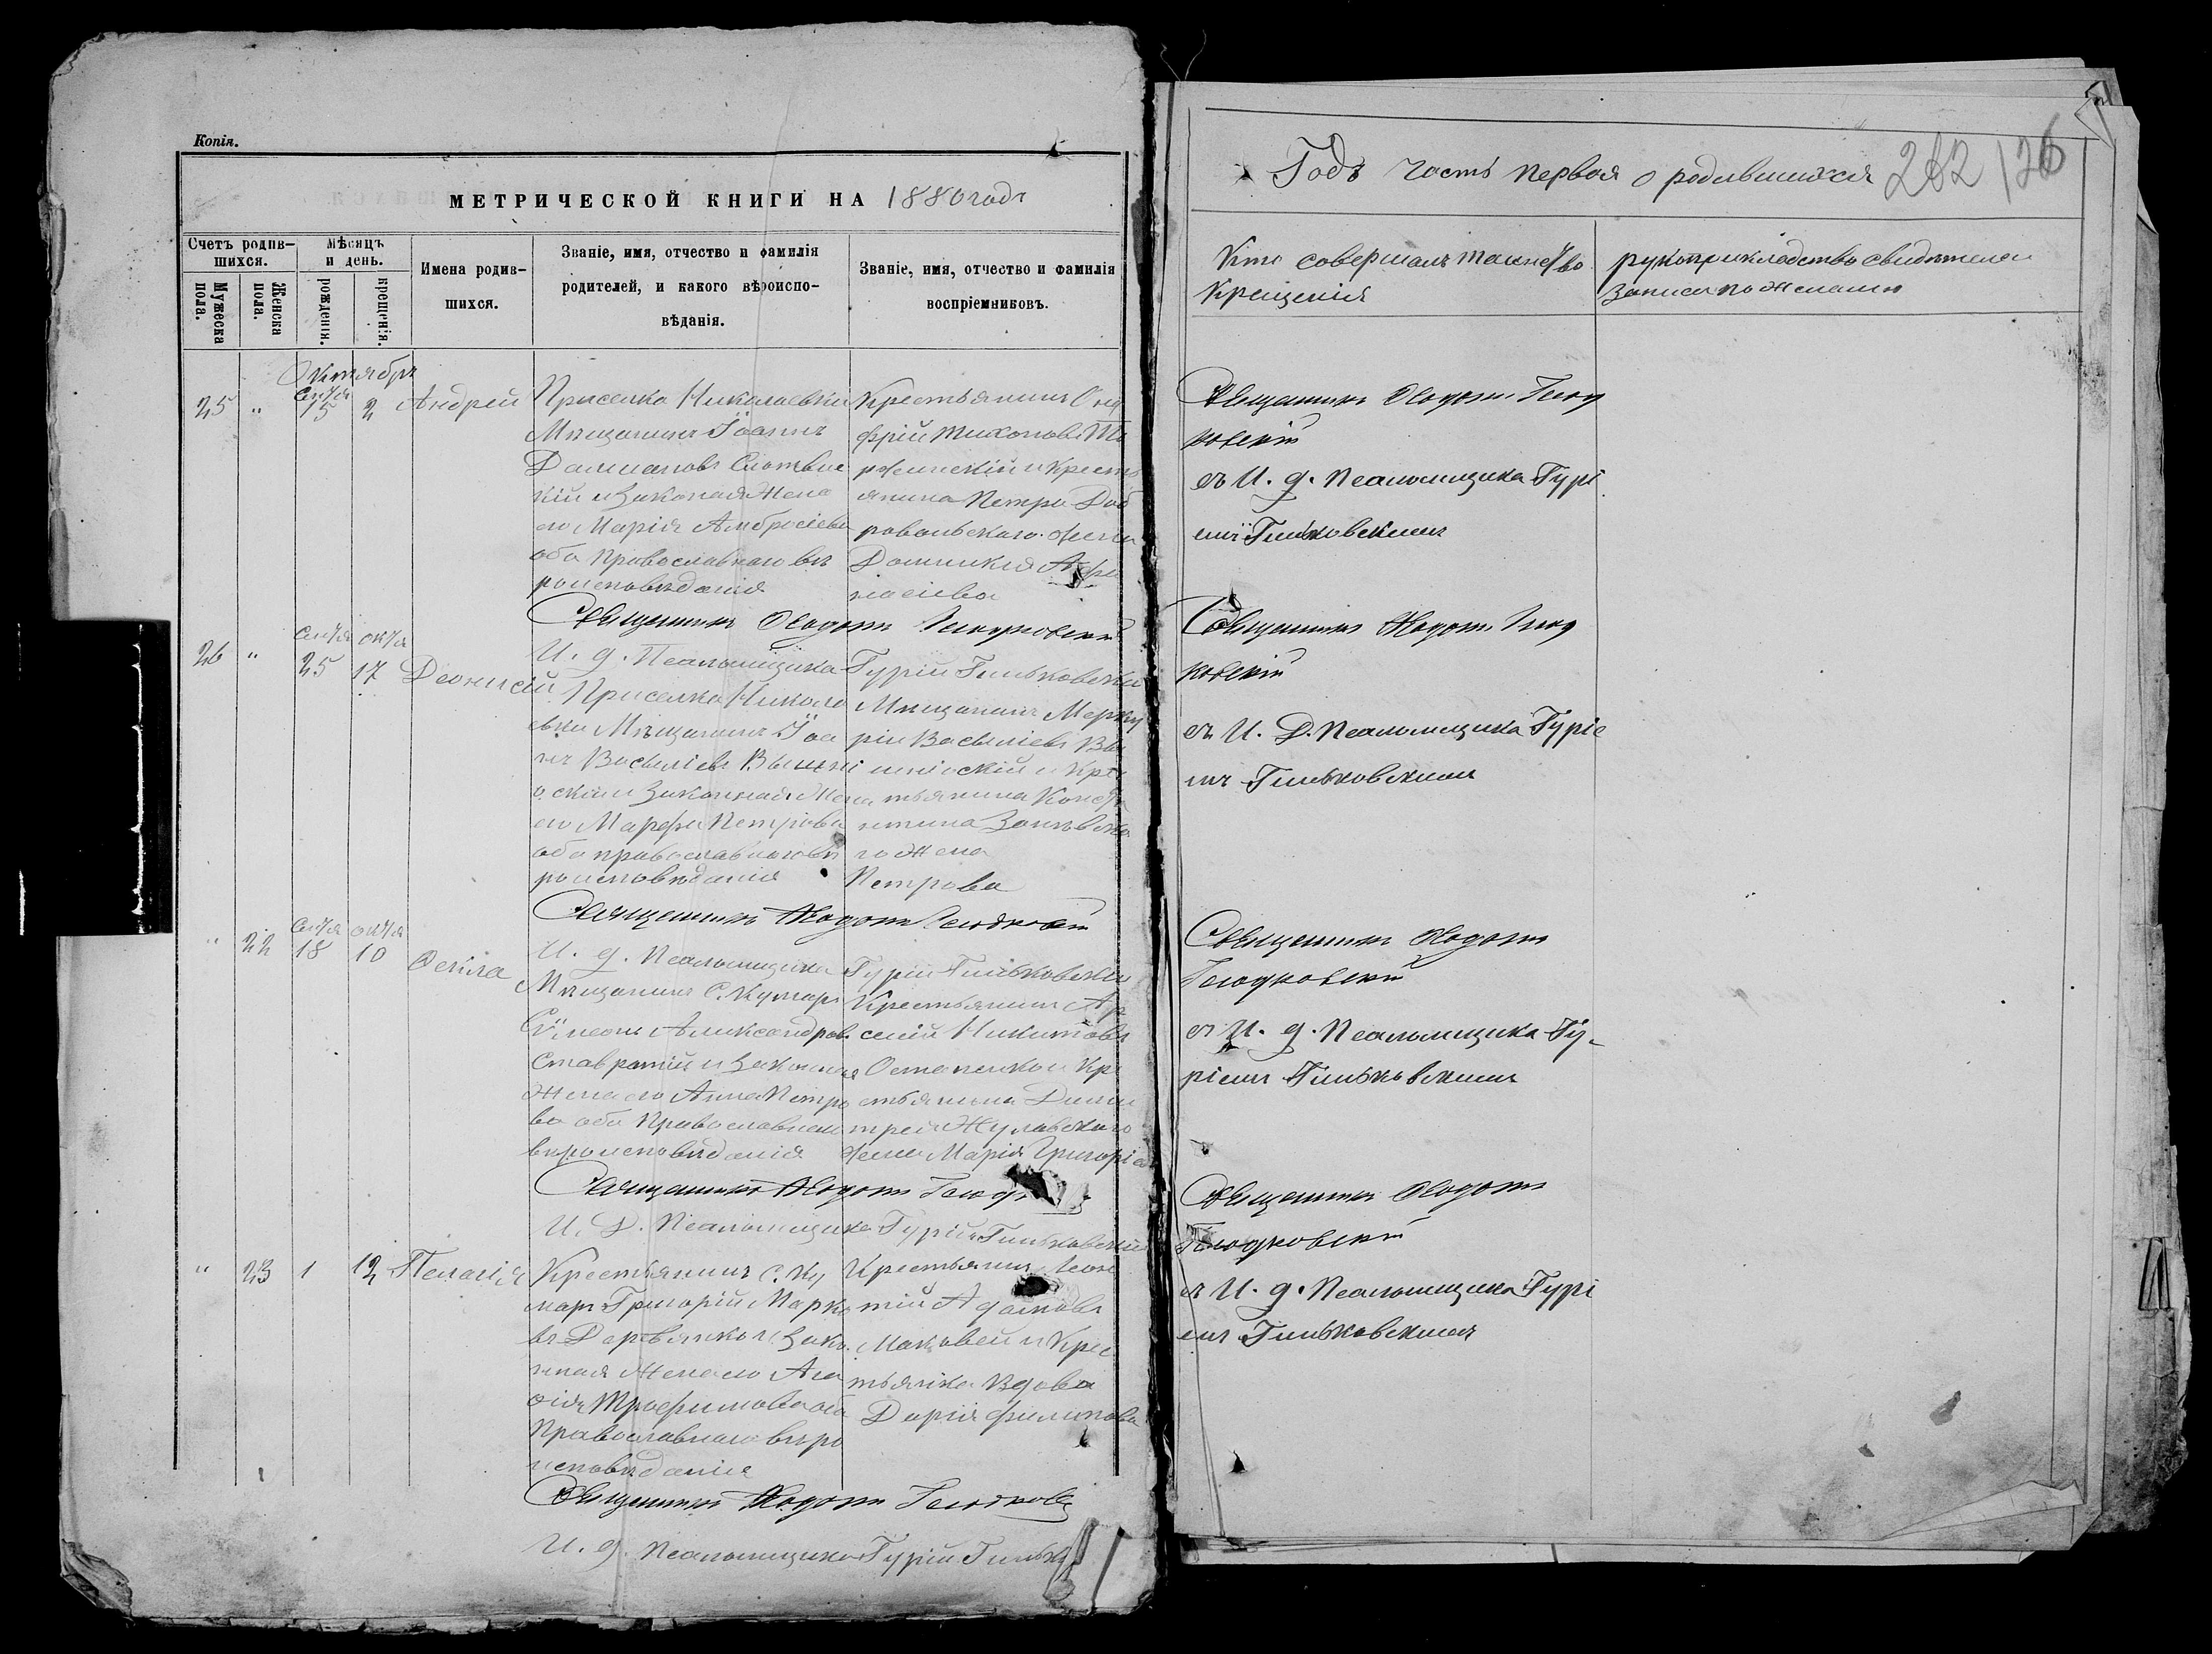 Копія.
МЕТРИЧЕСКОЙ КНИГИ НА 1880 годъ
Счетъ родив-
шихся.
Мужеска
пола.
Женска
пола.
Мѣсяцъ
и день.
рожденія.
крещенія.
Имена родив-
шихся.
Званіе, имя, отчество и фамилія
родителей, и какого вѣроиспо-
вѣданія.
Званіе, имя, отчество и фамилія
воспріемниковъ.
Октябрь
25 " 15 2 Андрей
Приселка Николаевки
Мѣщанинъ Іоаннъ
Даміановъ
кій и Законная Жена
его Марія Амвросіева
оба Православнаго вѣ
роисповѣданія
Крестьянинъ Они
фрій Тихоновъ
и Крест
янина Петра Доб
ровольскаго жена
Домникія Афа
насіева
Священникъ Ѳеодотъ
И. д. Псаломщика Гурій Гиньковскій
26 " 25 17 Деонисій
Приселка Никола
евки Мѣщанинъ Іоа
нъ Василіевъ
и Законная Жена
его Марфа Петрова
оба православнаго вѣ
роисповѣданія
Мѣщанинъ Мерку
рій Василіевъ
и Кре
тьянина Конста
нтина
го Жена
Петрова
Священникъ Ѳеодотъ
И. д. Псаломщика Гурій Гиньковскій
" 22 18 10 Ѳекла
Мѣщанинъ С. Кумаръ
Сѵмеонъ Александровъ
Ставратій и Законная
Жена его Анна Петро
ва оба Православнаго
вѣроисповѣданія
Крестьянинъ Ар
сеній Никитовъ
Остапенко и Кре
стьянина Дими
трія Жулавскаго
жена Марія Григоріева
Священникъ Ѳеодотъ
И. Д. Псаломщика Гурій Гиньковскій
" 23 1 12 Пелагія
Крестьянинъ с. Ку
маръ Григорій Марко
въ Деревянко и Зако
нная Жена его Ага
ѳія Трофимова оба
Православнаго вѣро
исповѣданія
Крестьянинъ Леон
тій Адамовъ
Маковей и Крес
тьянка Вдова
Дарія Филипова
Священникъ Ѳеодотъ
И. д. Псаломщика Гурій
Годъ часть первая о родившихся
262 126
Кто совершалъ таинство
Крещенія
рукоприкладство свидѣтелей
записи по желанію
Священникъ Ѳеодотъ
съ И. д. Псаломщика Гурі
емъ Гиньковскимъ
Священникъ Ѳеодотъ
съ И. Д. Псаломщика Гуріе
мъ Гиньковскимъ
Священникъ Ѳеодотъ
съ И. д. Псаломщика Гу-
ріемъ Гиньковскимъ
Священникъ Ѳеодотъ
съ И. д. Псаломщика Гурі
емъ Гиньковскимъ